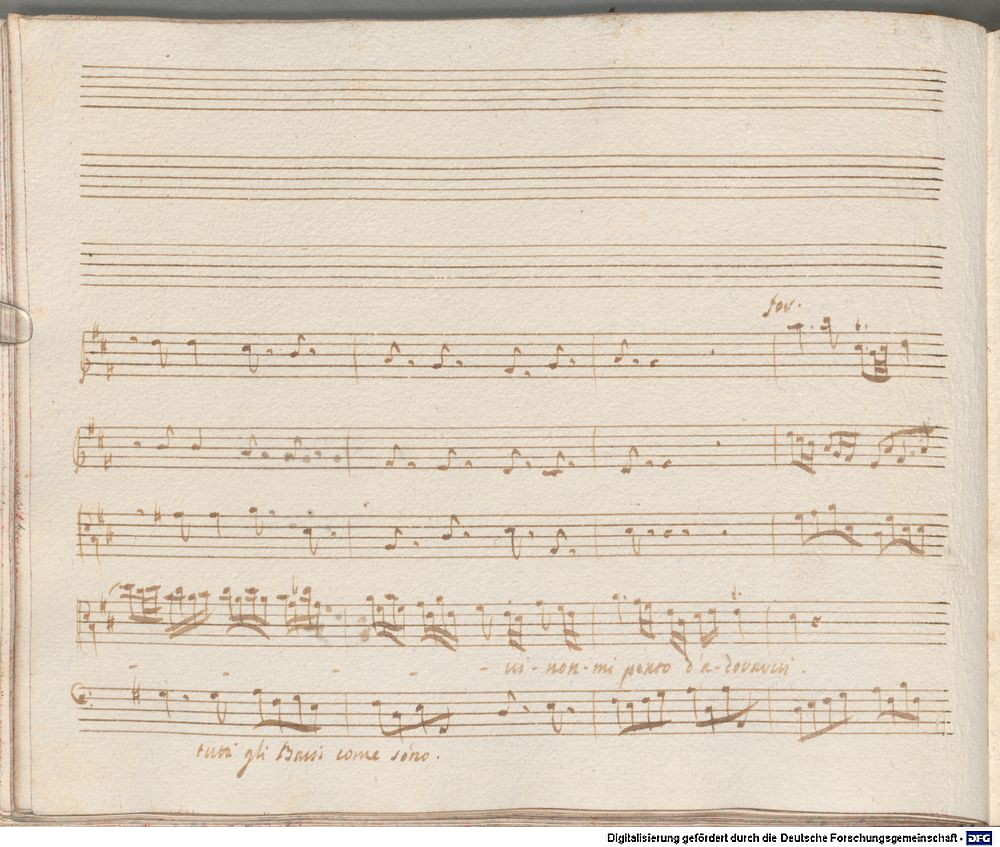 for.
vi - non - mi pento d'a - dorarvi.
tutti gli Bassi come sono.
Digitalisierung gefördert durch die Deutsche Forschungsgemeinschaft - DFG